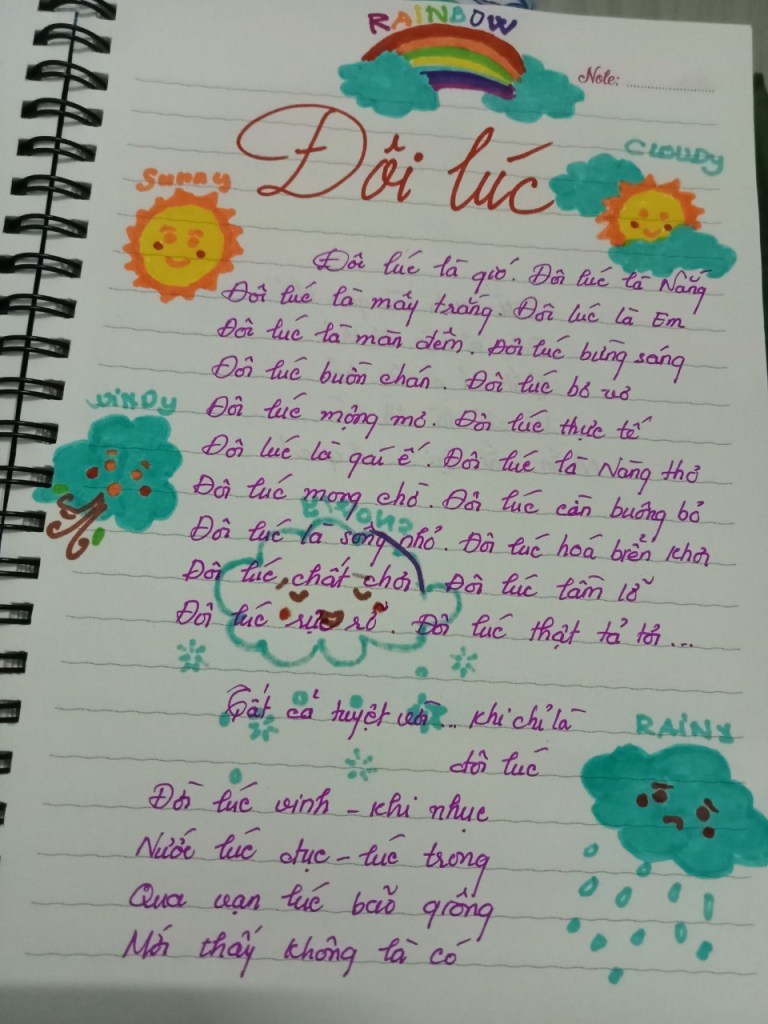 RAINBOW
Note:
Đôi lúc
CLOUDY
Sunny
Đôi lúc là gió. Đôi lúc là Nắng
Đôi lúc là mây trắng. Đôi lúc là Em
Đôi lúc là màn đêm. Đôi lúc bừng sáng
Đôi lúc buồn chán. Đôi lúc bơ vơ
WINDY
Đôi lúc mộng mơ. Đôi lúc thực tế
Đôi lúc là gái ế. Đôi lúc là Nàng thơ
Đôi lúc mong chờ. Đôi lúc cần buông bỏ
Đôi lúc là sông nhỏ. Đôi lúc hoá biển khơi
Đôi lúc chất chơi Đôi lúc lầm lỡ
Đôi lúc rực rỡ. Đôi lúc thật tả tơi...
Tất cả tuyệt vời... khi chỉ là
đôi lúc
RAINY
Đời lúc vinh - khi nhục
Nước lúc đục - lúc trong
Qua vạn lúc bão giông
Mới thấy không là có